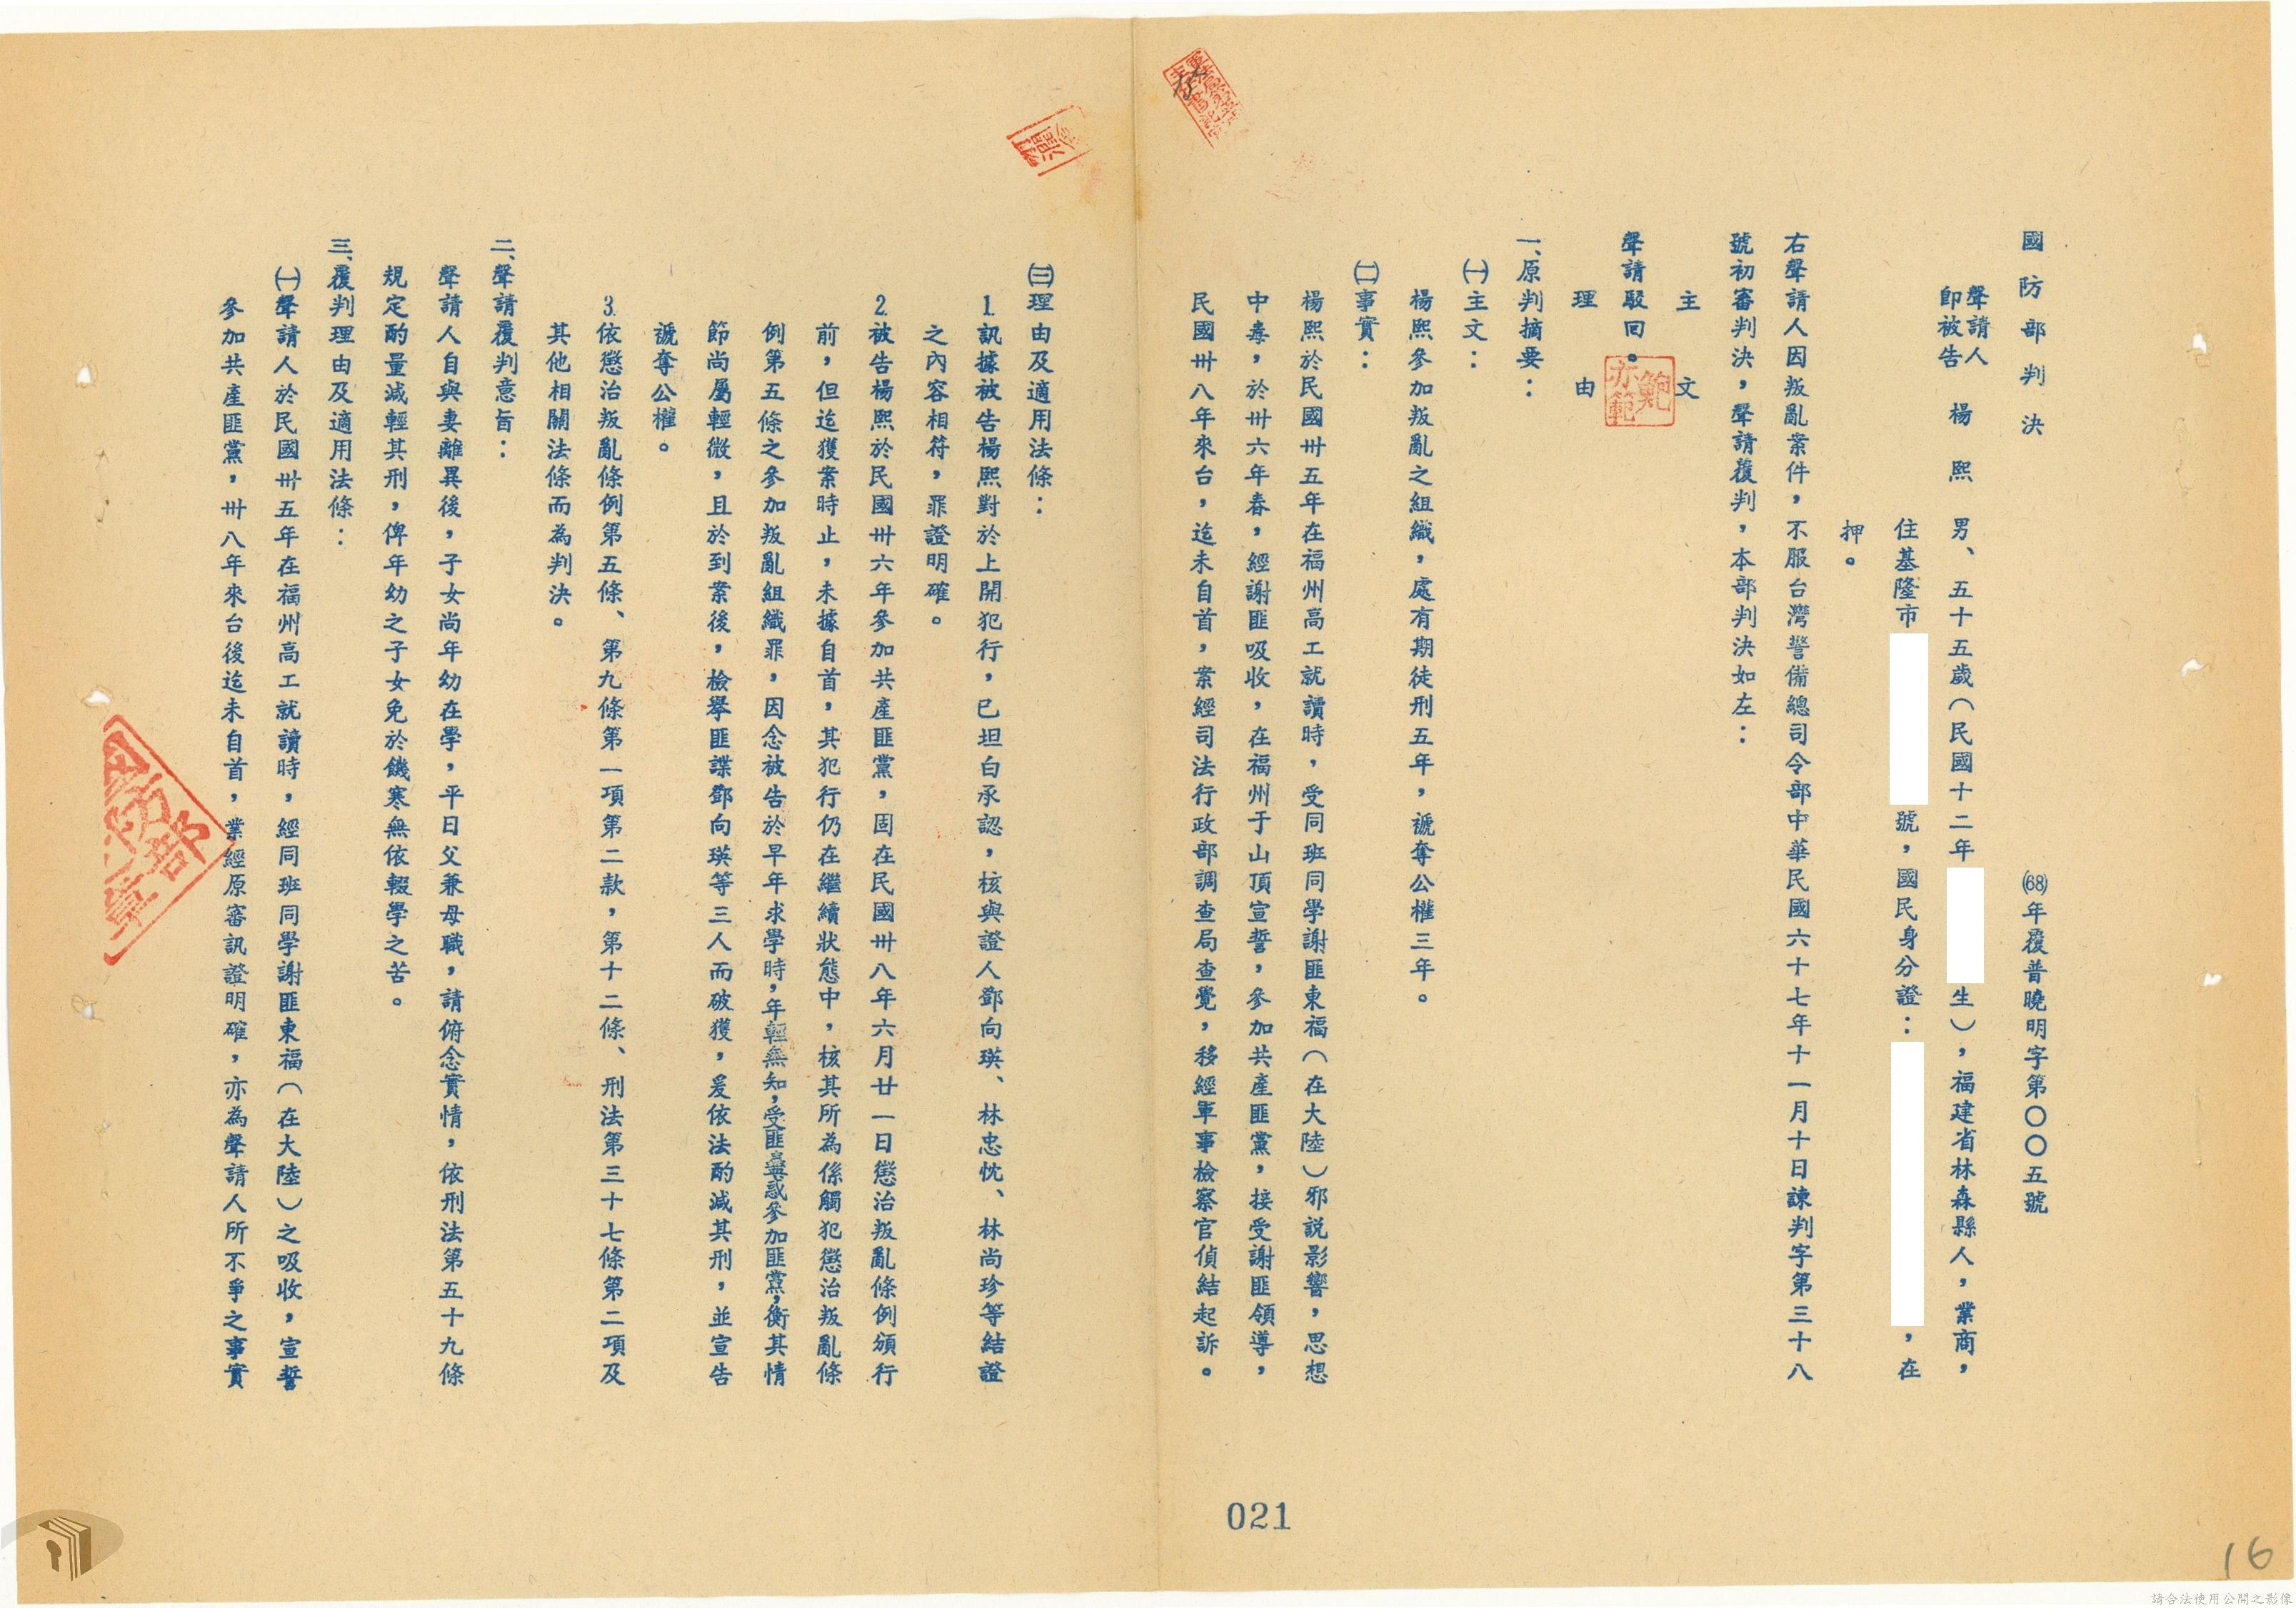 國防部判決
(68)年覆普曉明字第〇〇五號
聲請人
即被告 楊熙 男、五十五歲(民國十二年 生),福建省林森縣人,業商,
住基隆市 號,國民身分證: ,在
押。
右聲請人因叛亂案件,不服台灣警備總司令部中華民國六十七年十一月十日諫判字第三十八
號初審判決,聲請覆判,本部判決如左:
主文
聲請駁回。
鮑
亦範
理由
一、原判摘要:
㈠主文:
楊熙參加叛亂之組織,處有期徒刑五年,褫奪公權三年。
㈡事實:
楊熙於民國卅五年在福州高工就讀時,受同班同學謝匪東福(在大陸)邪説影響,思想
中毒,於卅六年春,經謝匪吸收,在福州于山頂宣誓,參加共產匪黨,接受謝匪領導,
民國卅八年來台,迄未自首,案經司法行政部調查局查覺,移經軍事檢察官偵結起訴。
㈢理由及適用法條:
1.訊據被告楊熙對於上開犯行,已坦白承認,核與證人鄧向瑛、林忠忱、林尚珍等結證
之內容相符,罪證明確。
2.被告楊熙於民國卅六年參加共產匪黨,固在民國卅八年六月廿一日懲治叛亂條例頒行
前,但迄獲案時止,未據自首,其犯行仍在繼續狀態中,核其所為係觸犯懲治叛亂條
例第五條之參加叛亂組織罪,因念被告於早年求學時,年輕無知,受匪蠱惑參加匪黨,衡其情
節尚屬輕微,且於到案後,檢舉匪諜鄧向瑛等三人而破獲,爰依法酌減其刑,並宣告
褫奪公權。
3.依懲治叛亂條例第五條、第九條第一項第二款,第十二條、刑法第三十七條第二項及
其他相關法條而為判決。
二、聲請覆判意旨:
聲請人自與妻離異後,子女尚年幼在學,平日父兼母職,請俯念實情,依刑法第五十九條
規定酌量減輕其刑,俾年幼之子女免於饑寒無依輟學之苦。
三、覆判理由及適用法條:
㈠聲請人於民國卅五年在福州高工就讀時,經同班同學謝匪東福(在大陸)之吸收,宣誓
參加共產匪黨,卅八年來台後迄未自首,業經原審訊證明確,亦為聲請人所不爭之事實
021
16
請合法使用公開之影像